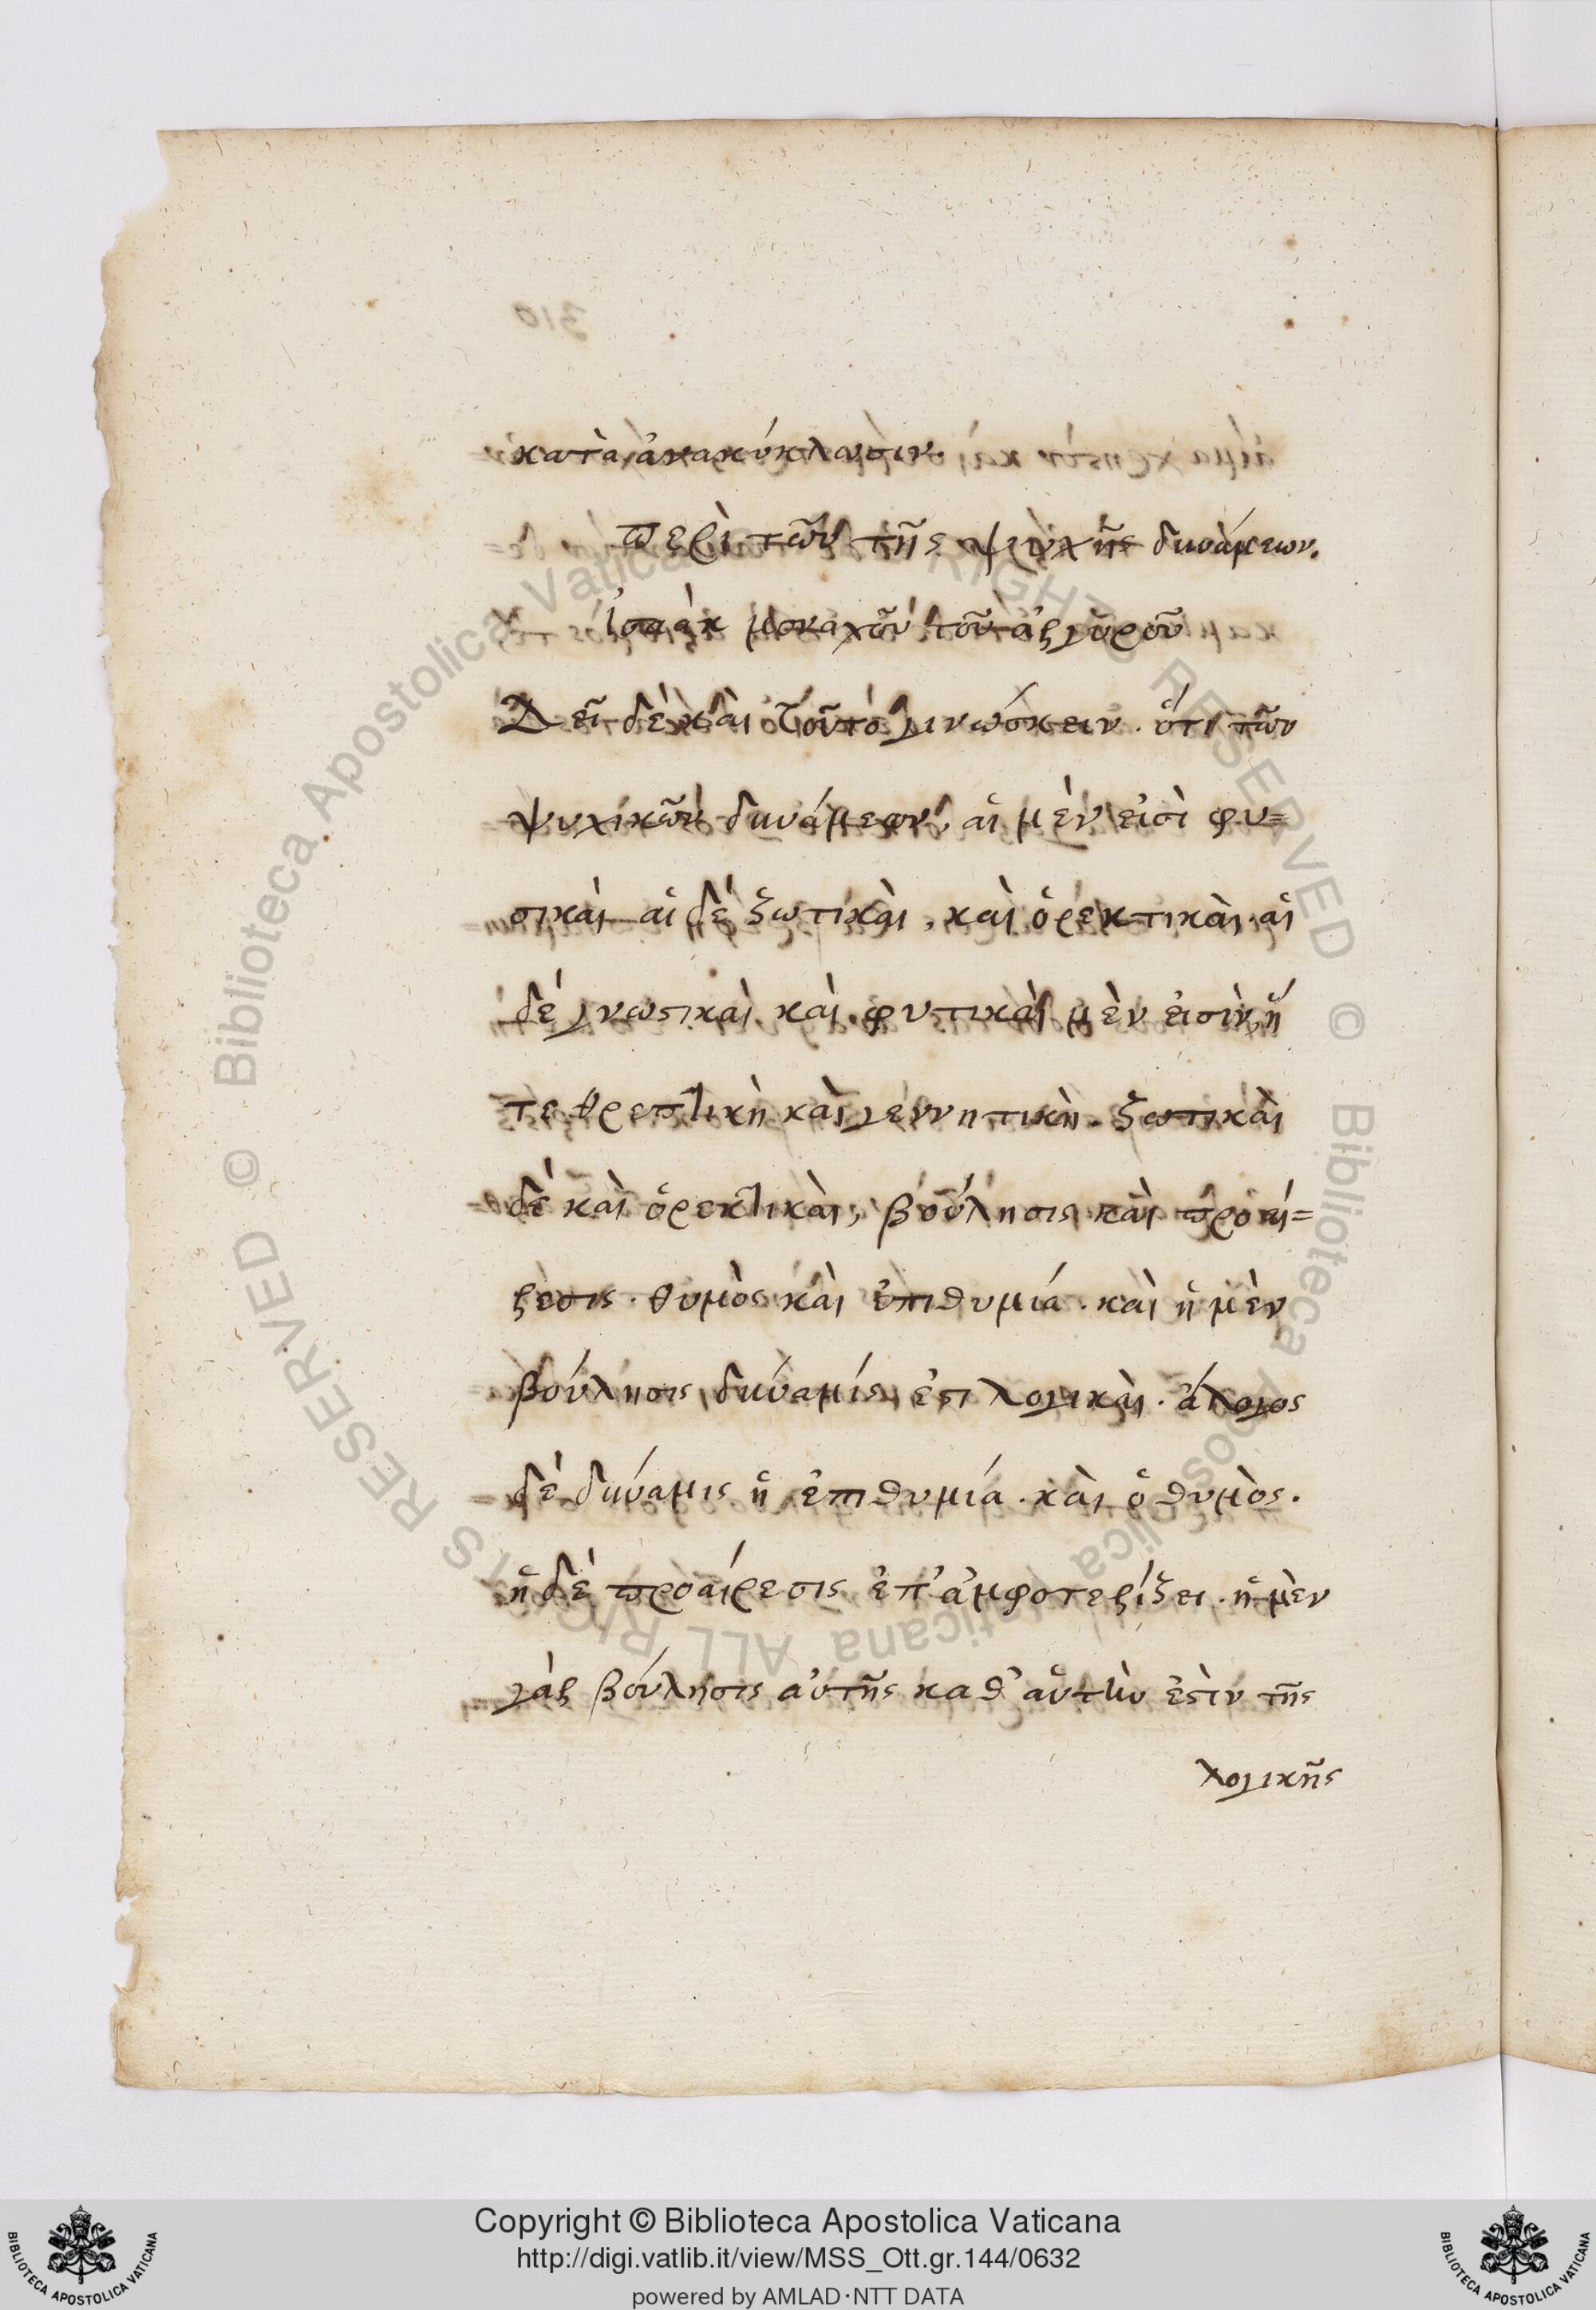 κατὰ ἀνακύκλωσιν.
περὶ τῶν τῆς ψυχῆς δυνάμεων.
Ἰσαὰκ μοναχοῦ τοῦ ἀργυροῦ
Δεῖ δὲ καὶ τοῦτο γινώσκειν. ὅτι τῶν
ψυχικῶν δυνάμεων, αἱ μὲν εἰσὶ φυ=
σικαὶ αἱ δὲ ζωτικαὶ, καὶ ὀρεκτικαὶ. αἱ
δὲ γνωστικαὶ καὶ. φυτικαὶ μὲν εἰσὶν, ἥ
τε θρεπτικὴ καὶ γεννητικὴ. ζωτικαὶ
δὲ καὶ ὀρεκτικαὶ, βούλησις καὶ προαί=
ρεσις. θυμὸς καὶ ἐπιθυμία. καὶ ἡ μὲν
βούλησις δύναμίς ἐστι λογικαὶ. ἄλογος
δὲ δύναμις ἡ ἐπιθυμία. καὶ ὁ θυμὸς.
ἡ δὲ προαίρεσις ἐπ' ἀμφοτερίζει. ἡ μὲν
γὰρ βούλησις αὐτῆς καθ' αὑτὴν ἐστὶν τῆς
λογικῆς
Copyright © Biblioteca Apostolica Vaticana
http://digi.vatlib.it/view/MSS_Ott.gr.144/0632
powered by AMLAD·NTT DATA
BIBLIOTECA APOSTOLICA VATICANA
BIBLIOTECA APOSTOLICA VATICANA
© Biblioteca Apostolica Vaticana ALL RIGHTS RESERVED
© Biblioteca Apostolica Vaticana ALL RIGHTS RESERVED